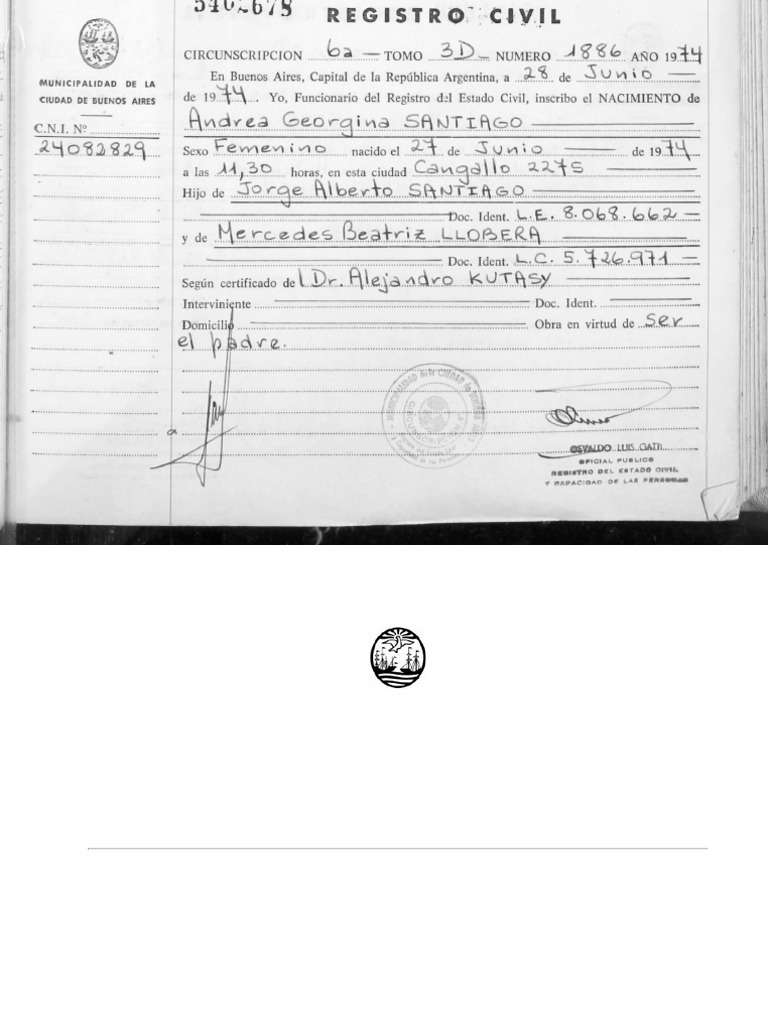 REGISTRO CIVIL
MUNICIPALIDAD DE LA
CIUDAD DE BUENOS AIRES
C.N.I. Nº
24082829
CIRCUNSCRIPCION 6a TOMO 3D NUMERO 1886 AÑO 1974
En Buenos Aires, Capital de la República Argentina, a 28 de Junio
de 1974. Yo, Funcionario del Registro del Estado Civil, inscribo el NACIMIENTO de
Andrea Georgina SANTIAGO
Sexo Femenino nacido el 27 de Junio de 1974
a las 11,30 horas, en esta ciudad Cangallo 2275
Hijo de Jorge Alberto SANTIAGO
Doc. Ident. L.E. 8.068.662
y de Mercedes Beatriz LLOBERA
Doc. Ident. L.C. 5.726.971
Según certificado del Dr. Alejandro KUTASY
Interviniente Doc. Ident.
Domicilio Obra en virtud de ser
el padre.
OSVALDO LUIS GATTI
OFICIAL PUBLICO
REGISTRO DEL ESTADO CIVIL
Y CAPACIDAD DE LAS PERSONAS